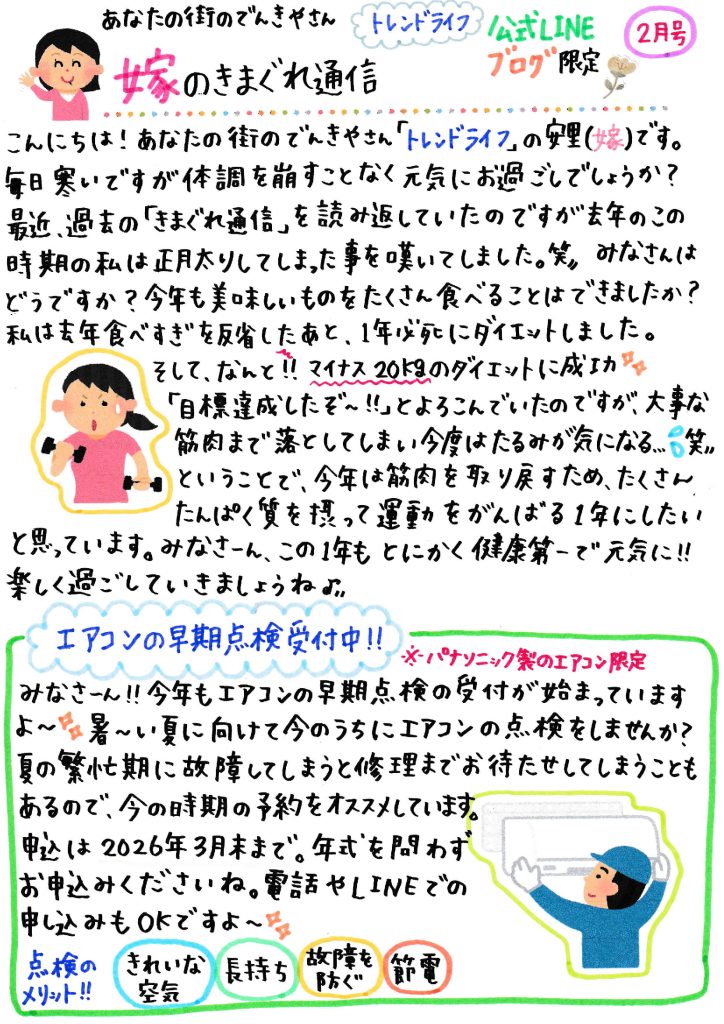 あなたの街のでんきやさん
トレンドライフ
公式LINE
ブログ限定
2月号
嫁のきまぐれ通信
こんにちは！あなたの街のでんきやさん「トレンドライフ」の安里(嫁)です。
毎日寒いですが体調を崩すことなく元気にお過ごしでしょうか？
最近、過去の「きまぐれ通信」を読み返していたのですが去年のこの
時期の私は正月太りしてしまった事を嘆いてしました。笑〃 みなさんは
どうですか？今年も美味しいものをたくさん食べることはできましたか？
私は去年食べすぎを反省したあと、1年必死にダイエットしました。
そして、なんと!! マイナス20kgのダイエットに成功
「目標達成したぞ〜!!」とよろこんでいたのですが、大事な
筋肉まで落としてしまい今度はたるみが気になる…笑〃
ということで、今年は筋肉を取り戻すため、たくさん
たんぱく質を摂って運動をがんばる1年にしたい
と思っています。みなさーん、この1年もとにかく健康第一で元気に!!
楽しく過ごしていきましょうね♪〃
エアコンの早期点検受付中!!
※パナソニック製のエアコン限定
みなさーん!!今年もエアコンの早期点検の受付が始まっています
よ〜 暑〜い夏に向けて今のうちにエアコンの点検をしませんか？
夏の繁忙期に故障してしまうと修理までお待たせしてしまうことも
あるので、今の時期の予約をオススメしています。
申込は2026年3月末まで。年式を問わず
お申込みくださいね。電話やLINEでの
申し込みもOKですよ〜
点検の
メリット!!
きれいな
空気
長持ち
故障を
防ぐ
節電